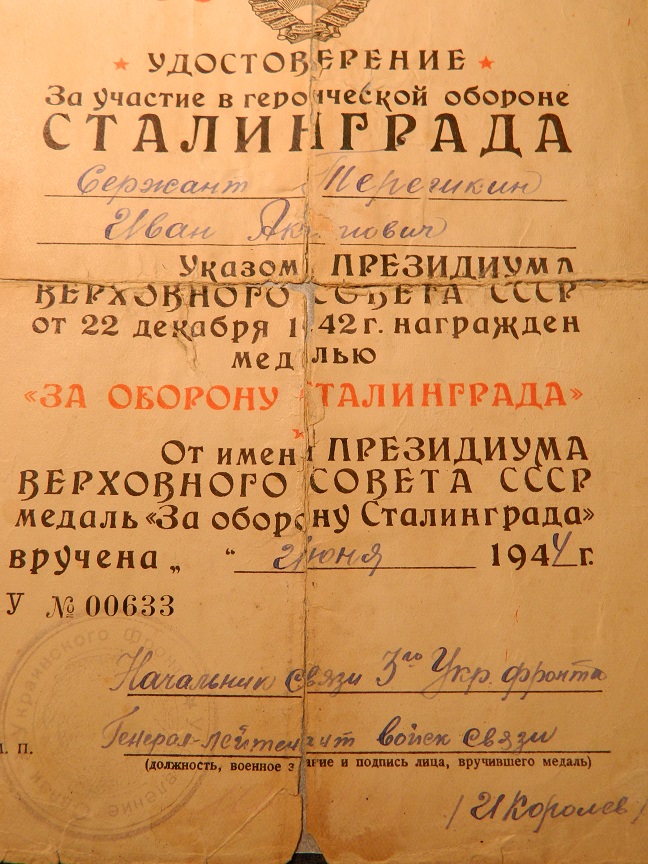 УДОСТОВЕРЕНИЕ
За участие в героической обороне
СТАЛИНГРАДА
Сержант Терешкин
Иван
Указом ПРЕЗИДИУМА
ВЕРХОВНОГО СОВЕТА СССР
от 22 декабря 1942 г. награжден
медалью
«ЗА ОБОРОНУ СТАЛИНГРАДА»
От имени ПРЕЗИДИУМА
ВЕРХОВНОГО СОВЕТА СССР
медаль «За оборону Сталинграда»
вручена „ “ Июня 1944 г.
У № 00633
Начальник связи 3го Укр. фронта
Генерал-лейтенант войск связи
М. П.
(должность, военное звание и подпись лица, вручившего медаль)
/ И Королев /
Украинского Фрон